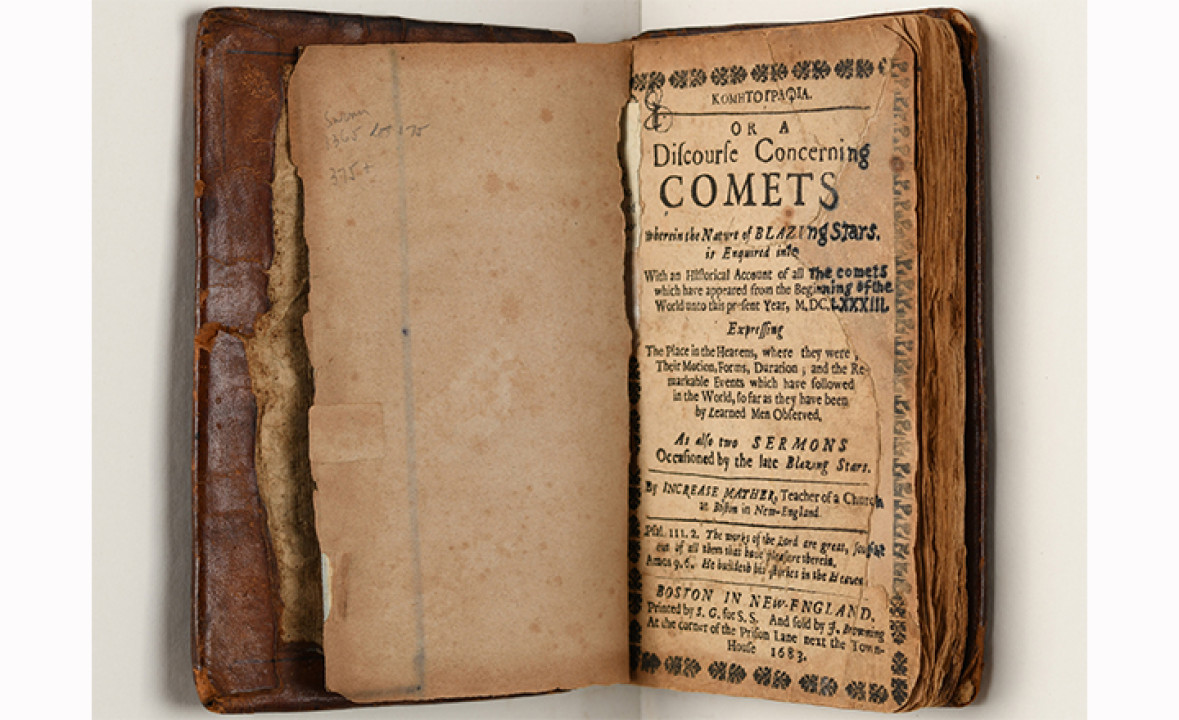 1365 Lot 175
375+
ΚΟΜΗΤΟΓΡΑΦΙΑ.
OR A
Diſcourſe Concerning
COMETS
Wherein the Nature of BLAZIng Stars.
is Enquired into
With an Hiſtorical Account of all The comets
which have appeared from the Beginning of the
World unto this preſent Year, M.DC.LXXXIII.
Expreſſing
The Place in the Heavens, where they were,
Their Motion, Forms, Duration; and the Re-
markable Events which have followed
in the World, ſo far as they have been
by Learned Men Obſerved,
As alſo two SERMONS
Occaſioned by the late Blazing Stars.
By INCREASE MATHER, Teacher of a Church
at Boſton in New-England.
Pſal. 111. 2. The works of the Lord are great, ſought
out of all them that have pleaſure therein.
Amos 9. 6. He buildeth his ſtories in the Heaven
BOSTON IN NEW-ENGLAND.
Printed by S. G. for S. S. And ſold by J. Browning
At the corner of the Priſon Lane next the Town-
Houſe 1683.